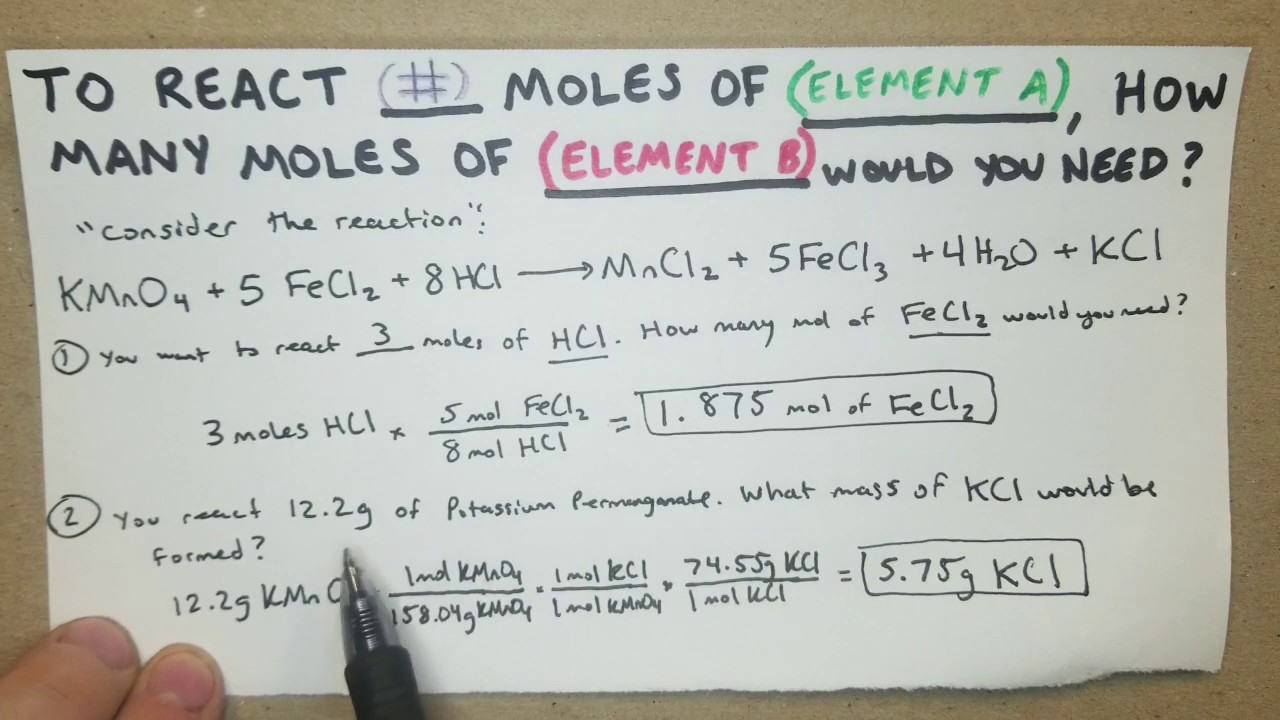 TO REACT (#) MOLES OF (ELEMENT A), HOW
MANY MOLES OF (ELEMENT B) WOULD YOU NEED?
"consider the reaction":
KMnO₄ + 5 FeCl₂ + 8 HCl ⟶ MnCl₂ + 5FeCl₃ + 4H₂O + KCl
① You want to react 3 moles of HCl. How many mol of FeCl₂ would you need?
3 moles HCl × 5 mol FeCl₂ / 8 mol HCl = 1.875 mol of FeCl₂
② You react 12.2g of Potassium Permanganate. What mass of KCl would be
formed?
12.2g KMnO · 1mol KMnO₄ / 158.04g KMnO₄ · 1mol KCl / 1mol KMnO₄ · 74.55g KCl / 1mol KCl = 5.75g KCl